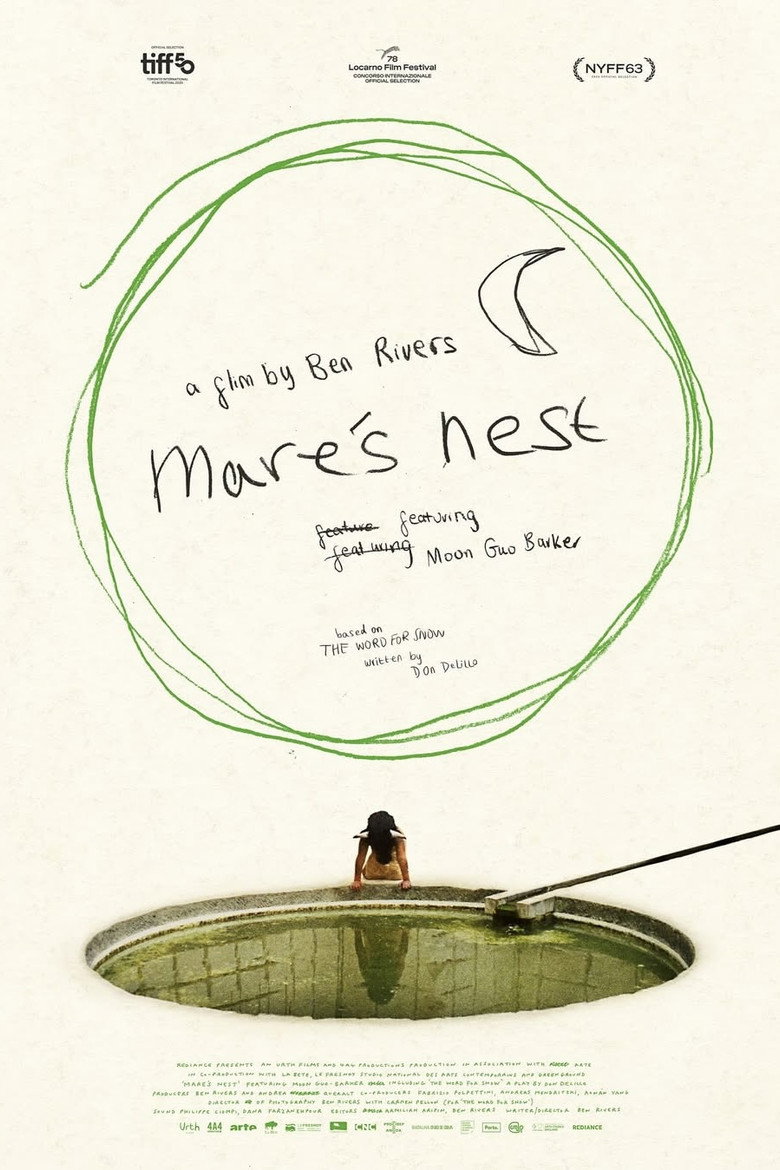 OFFICIAL SELECTION
tiff50
TORONTO INTERNATIONAL
FILM FESTIVAL 2025
78
Locarno Film Festival
CONCORSO INTERNAZIONALE
OFFICIAL SELECTION
NYFF63
2025 OFFICIAL SELECTION
a film by Ben Rivers
Mare's nest
feature featuring
featuring Moon Guo Barker
based on
THE WORD FOR SNOW
written by
DON DeLillo
REDIANCE PRESENTS AN URTH FILMS AND PRODUCTIONS PRODUCTION IN ASSOCIATION WITH ARTE
IN CO-PRODUCTION WITH LA BÊTE, LE FRESNOY STUDIO NATIONAL DES ARTS CONTEMPORAINS AND GREEN GROUND
'MARE'S NEST' FEATURING MOON GUO-BARKER INCLUDING 'THE WORD FOR SNOW' A PLAY BY DON DELILLO
PRODUCERS BEN RIVERS AND ANDREA QUERALT CO-PRODUCERS FABRIZIO POLPETTINI, ANDREAS MENDRITZKI, AONAN YANG
DIRECTOR OF PHOTOGRAPHY BEN RIVERS WITH CARMEN PELLON (FOR 'THE WORD FOR SNOW')
SOUND PHILIPPE CIOMPI, DANA FARZANEHPOUR EDITORS ARMILIAH ARIPIN, BEN RIVERS WRITER/DIRECTOR BEN RIVERS
Urth 4A4 arte LE FRESNOY CNC REDIANCE